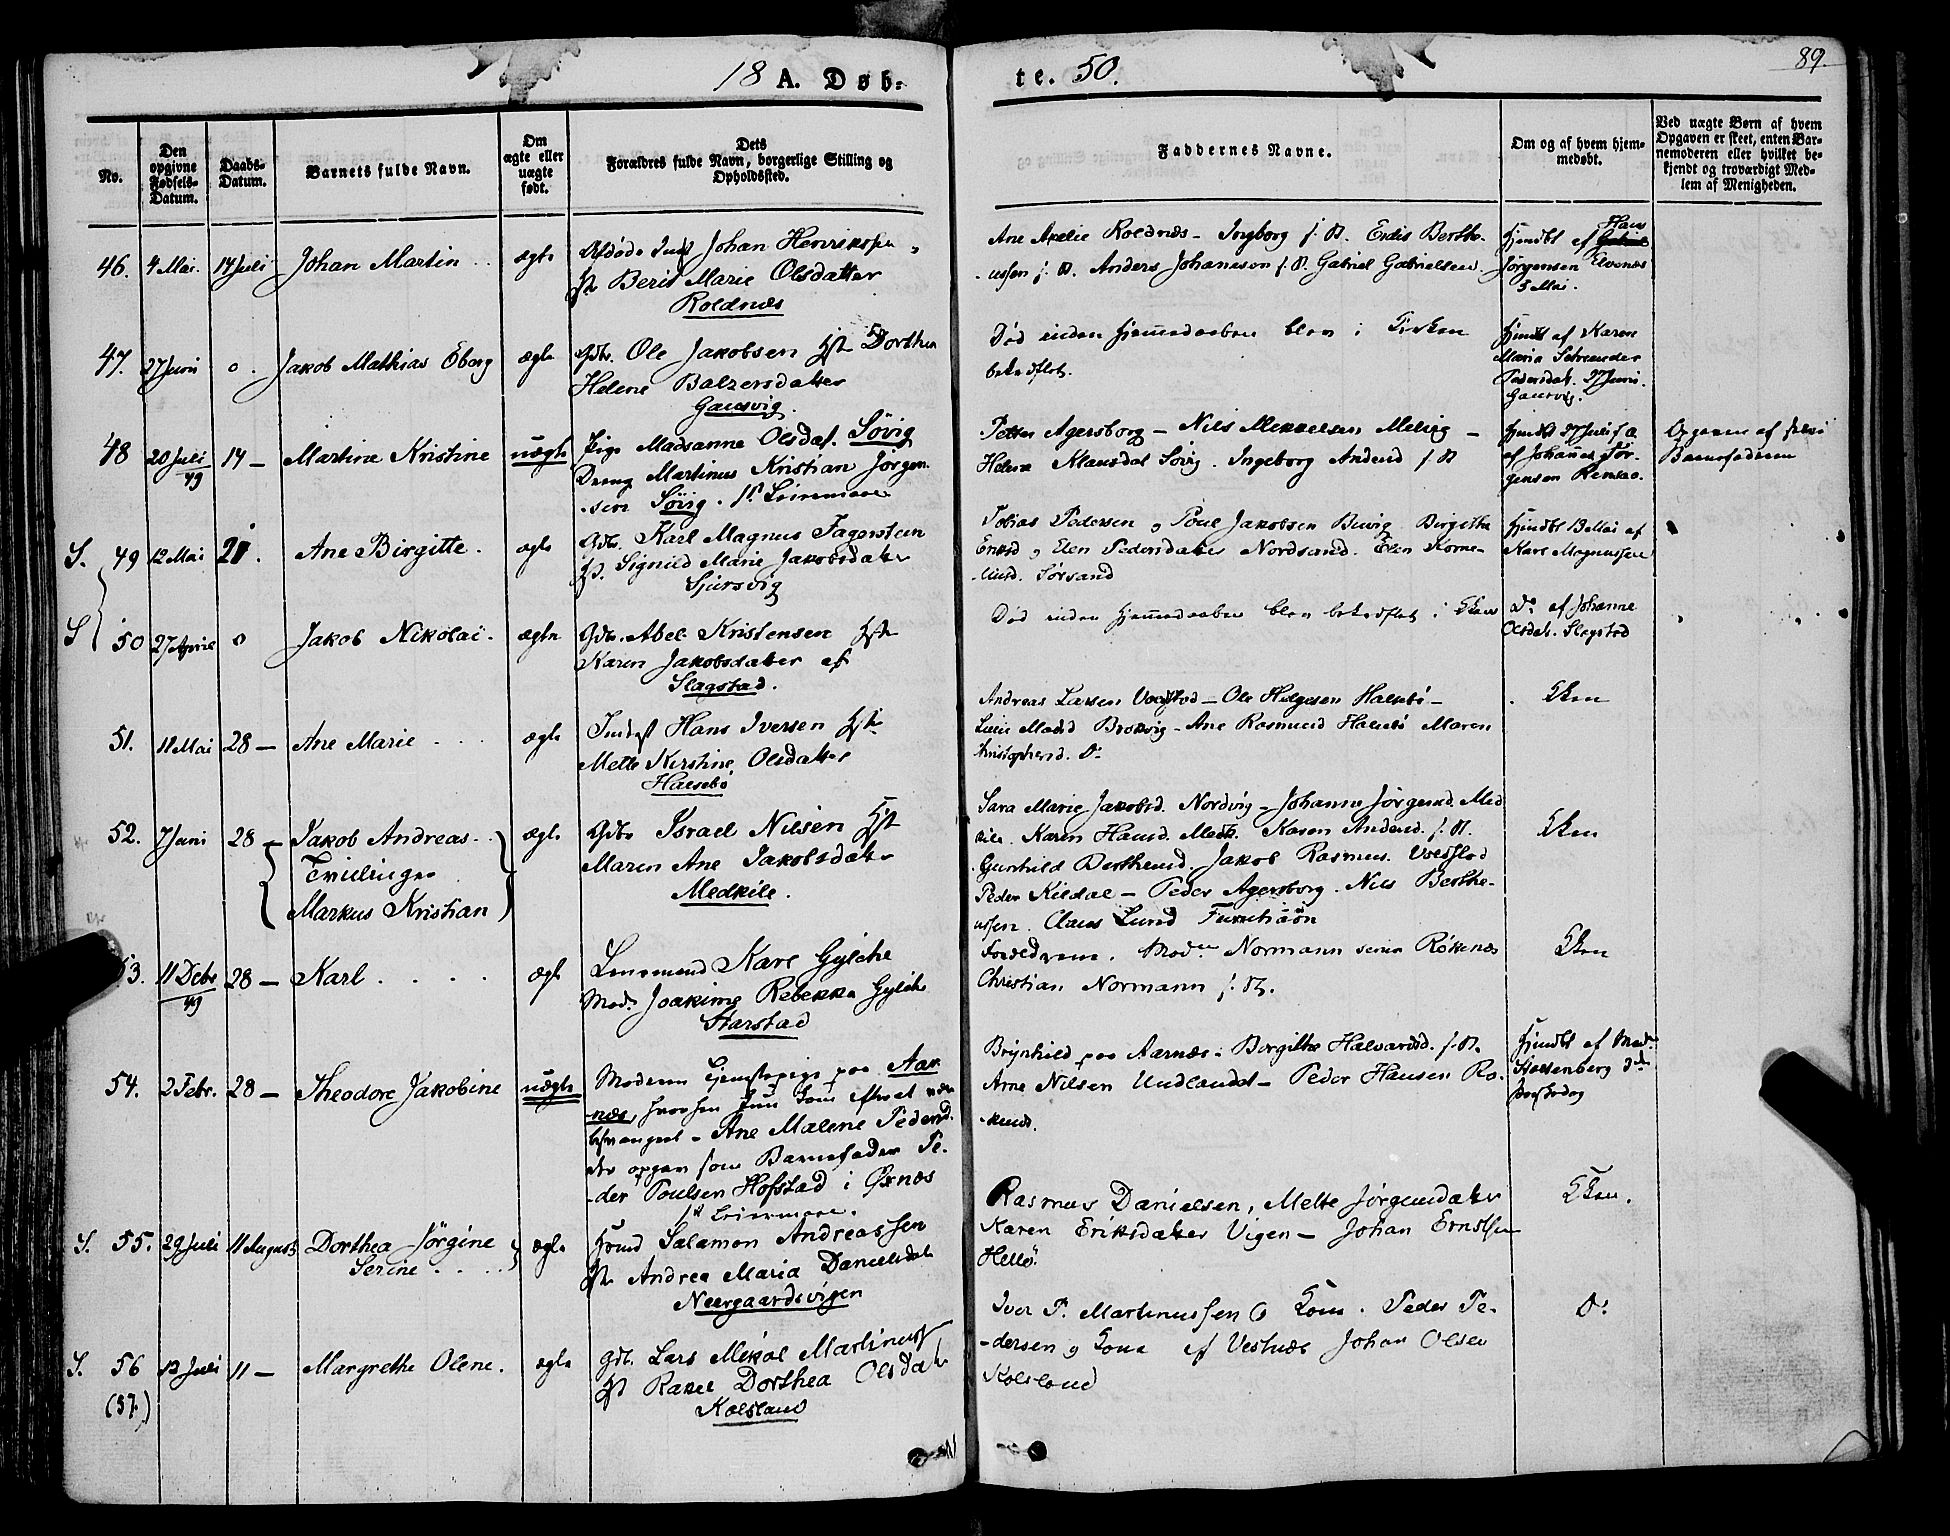 18 A. Døb-
te. 50.
89.
No.
Den opgivne Fødsels-Datum.
Daabs-Datum.
Barnets fulde Navn.
Om ægte eller uægte født.
Dets Forældres fulde Navn, borgerlige Stilling og Opholdssted.
Faddernes Navne.
Om og af hvem hjem-medøbt.
Ved uægte Børn af hvem Opgaven er skeet, enten Bar-nemoderen eller hvilket be-kjendt og troværdigt Med-lem af Menigheden.
46. 4 Mai. 14 Juli Johan Martin ægte
Johan Henriksen
Berit Marie Olsdatter
Roldnæs
Ane Axelie Roldnæs - Ingborg
Anders Johanson Gabriel Gabrielsen
Hjmdbt af Hans
Jørgensen Elvenæs
5 Mai.
47. 27 Juni o. Jakob Mathias Eberg ægte
Gdbr. Ole Jakobsen Hst Dorthea
Helene Balzersdatter
Gausvig.
Død inden Hjemmedaaben blev i Kirken
bekræftet.
Hjmdbt af Karen
Maria
Pedersdat. 27 Juni.
Gausvig.
48 20 Juli/49 14 - Martine Kristine uægte
Pige Madsanne Olsdat. Søvig
Dreng Martinus Kristian Jørgen-
sen Søvig. 1st Leiermaal
Petter Agersborg - Nils Mekkelsen Melvig -
Helene Klausdat Søvig. Ingeborg Andersd
Hjmdbt 27 Juli f.a.
af Johannes Jør-
gensen
Opgaven af
Barnefaderen
S. 49 12 Mai 21. Ane Birgitte. ægte
Gdbr. Karl Magnus Fagerstein
Hst. Signild Marie Jakobsdatter
Sjursvig
Tobias Pedersen og Poul Jakobsen Birgithe
Eriksd og Elen Pedersdatter Nordsand. Elen Korne-
liusd. Sørsand
Hjmdbt 13 Mai af
Karl Magnussen
S 50 27 April o Jakob Nikolai. ægte
Gdbr. Abel Kristensen Hst
Karen Jakobsdatter af
Slagstad.
Død inden Hjemmedaaben blev bekræftet i Kken
Do af Johanne
Olsdat. Slagstad
51. 11 Mai 28 - Ane Marie ægte
Indst Hans Iversen Hst
Mette Kirstine Olsdatter
Halsebø
Andreas Larsen Voldstad - Ole Helgesen Halsebø -
Madsd Brokvig - Ane Rasmusd Halsebø Maren
Kristophersd. Do
Kken
52. 7 Juni 28 - Jakob Andreas
Tvillinger
Markus Kristian ægte
Gdbr Israel Nilsen Hst
Maren Ane Jakobsdatter
Medkile.
Sara Marie Jakobsd. Nordvig - Johanna Jørgensd. Med
kile. Karen Hansd. Medk. Karen Andersd.
Gunhild Berthensd. Jakob Rasmus. Voldstad
Peder Kildal - Peder Agersborg. Nils Berthe-
ussen. Claus Lund
Kken
53. 11 Debr/49 28 - Karl ægte
Lensmand Karl Gylche
Mad. Joakime Rebekka Gylche
Harstad
Forældrene. Madm Normann senior Røkenæs
Christian Normann
Kken
54. 2 Febr. 28 - Theodore Jakobine uægte
Moderen Tjenestepige paa Aak-
næs, hvorfra hun kom
besvangret - Ane Malene Pedersd.
der opgav som Barnefader Pe-
der Poulsen Hofstad i Øxnæs
1st Leiermaal.
Brynhild paa Aarnæs. Birgitte Halvorsd.
Arne Nilsen Undlandet - Peder Hansen Rø-
kenæs.
Hjmdbt af Mad.
Stoltenberg
S. 55. 29 Juli 11 August Dorthea Jørgine
Serine ægte
Hmd Salamon Andreassen
Hst Andrea Maria Danielsdat
Neergaardsvigen
Rasmus Danielsen, Mette Jørgensdatter
Karen Eriksdatter Vigen - Johan Ernstsen
Hellø.
Kken.
S. 56 13 Juli 11 - Margrethe Olene. ægte
(57.)
Gdb. Lars Mikal Martinuss
Hst Rakel Dorthea Olsdat
Kolsland
Iver P. Martinussen & Kone. Peder Pe-
dersen og Kone af Vestnæs Johan Olsen
Kolsland
Do